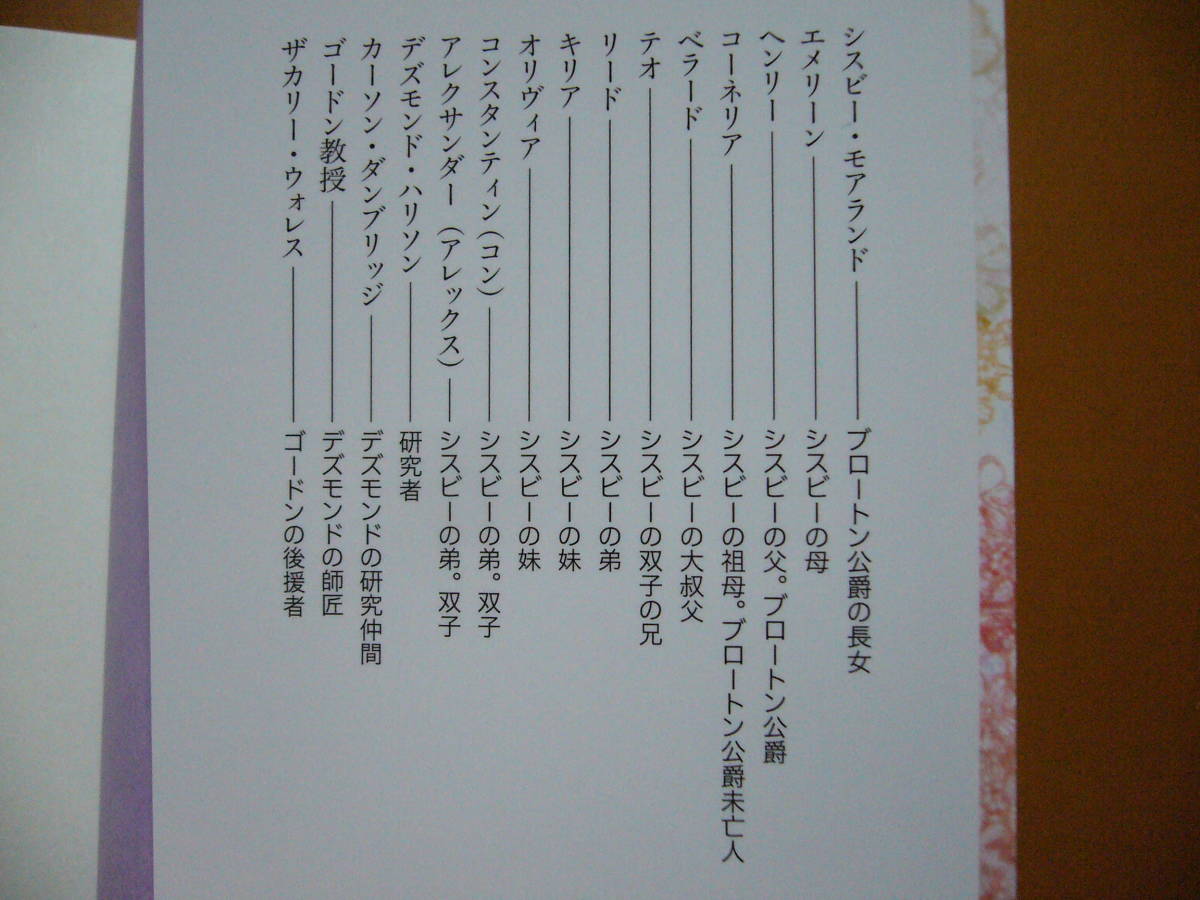 シスビー・モアランド――――ブロートン公爵の長女
エメリーン――――シスビーの母
ヘンリー――――シスビーの父。ブロートン公爵
コーネリア――――シスビーの祖母。ブロートン公爵未亡人
ベラード――――シスビーの大叔父
テオ――――シスビーの双子の兄
リード――――シスビーの弟
キリア――――シスビーの妹
オリヴィア――――シスビーの妹
コンスタンティン(コン)――――シスビーの弟。双子
アレクサンダー(アレックス)――シスビーの弟。双子
デズモンド・ハリソン――――研究者
カーソン・ダンブリッジ――――デズモンドの研究仲間
ゴードン教授――――デズモンドの師匠
ザカリー・ウォレス――――ゴードンの後援者